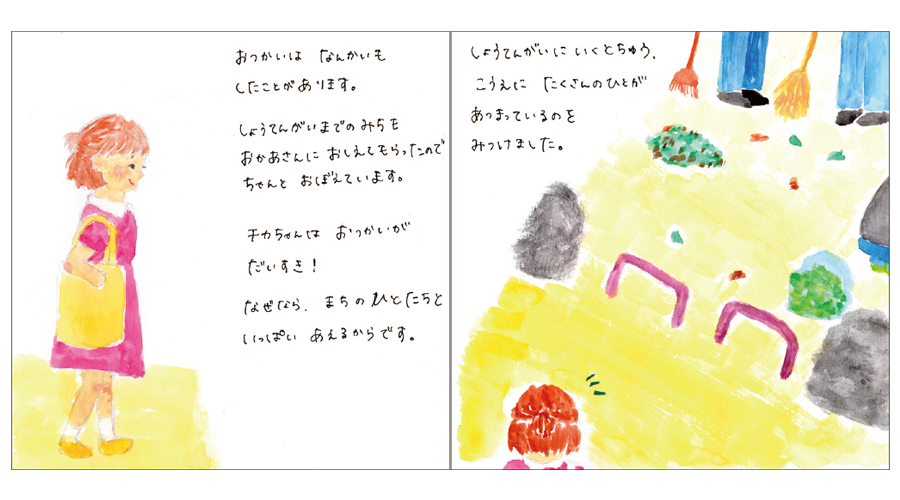 おつかいは なんかいも
したことが あります。
しょうてんがいまでの みちを
おかあさんに おしえてもらったので
ちゃんと おぼえています。
チカちゃんは おつかいが
だいすき！
なぜなら、まちの ひとたちと
いっぱい あえるからです。
しょうてんがいに いくとちゅう、
こうえに たくさんのひとが
あつまっているのを
みつけました。